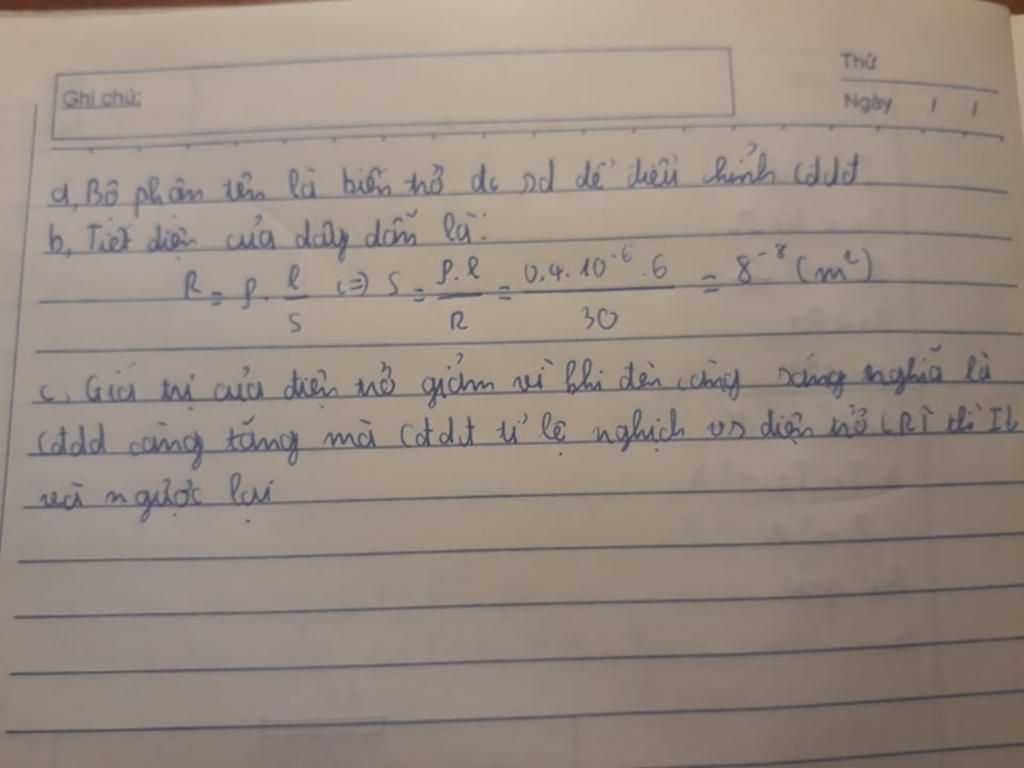 Ghi chú:
Thứ
Ngày / /
a, Bộ phận tên là biến trở đc sd để điều chỉnh Cđdđ
b, Tiết diện của dây dẫn là:
R = ρ. l/S (=) S = ρ.l/R = 0,4.10⁻⁶.6/30 = 8⁻⁸ (m²)
c, Giá trị của điện trở giảm vì khi đèn càng sáng nghĩa là
Cđdđ càng tăng mà Cđdđ tỉ lệ nghịch vs điện trở (R↑ thì I↓
và ngược lại